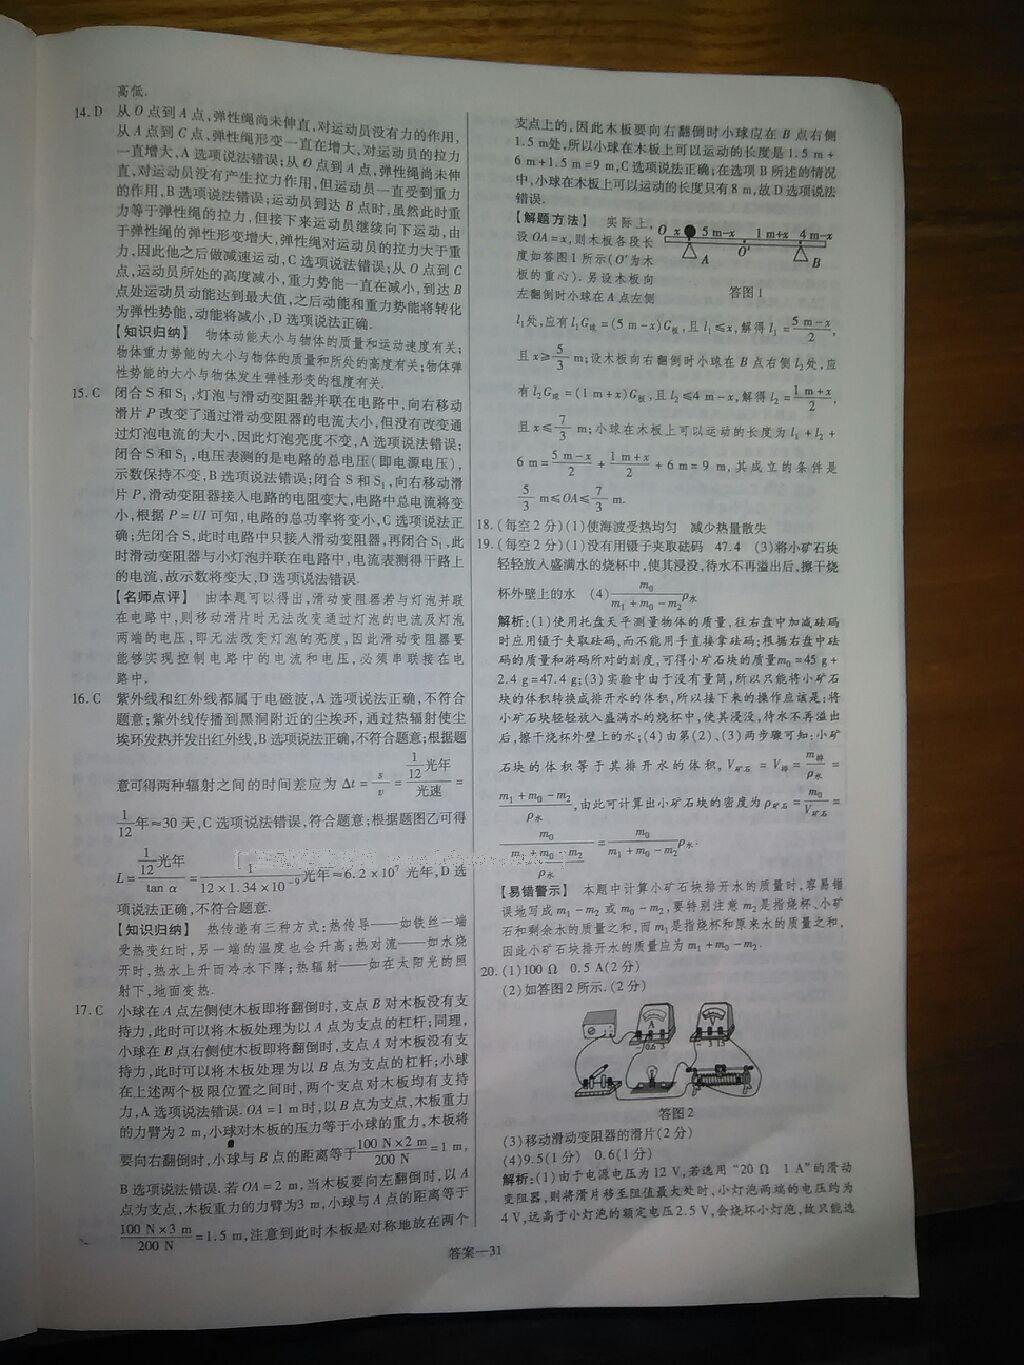 高低.
14. D 从 O 点到 A 点,弹性绳尚未伸直,对运动员没有力的作用,
从 A 点到 C 点,弹性绳形变一直在增大,对运动员的拉力
一直增大,A 选项说法错误;从 O 点到 A 点,弹性绳尚未伸
直,对运动员没有产生拉力作用,但运动员一直受到重力
的作用,B 选项说法错误;运动员到达 B 点时,虽然此时重
力等于弹性绳的拉力,但接下来运动员继续向下运动,由
于弹性绳的弹性形变增大,弹性绳对运动员的拉力大于重
力,因此他之后做减速运动,C 选项说法错误;从 O 点到 C
点,运动员所处的高度减小,重力势能一直在减小,到达 B
点处运动员动能达到最大值,之后动能和重力势能将转化
为弹性势能,动能将减小,D 选项说法正确.
【知识归纳】 物体动能大小与物体的质量和运动速度有关;
物体重力势能的大小与物体的质量和所处的高度有关;物体弹
性势能的大小与物体发生弹性形变的程度有关.
15. C 闭合 S 和 S₁,灯泡与滑动变阻器并联在电路中,向右移动
滑片 P 改变了通过滑动变阻器的电流大小,但没有改变通
过灯泡电流的大小,因此灯泡亮度不变,A 选项说法错误;
闭合 S 和 S₁,电压表测的是电路的总电压(即电源电压),
示数保持不变,B 选项说法错误;闭合 S 和 S₁,向右移动滑
片 P,滑动变阻器接入电路的电阻变大,电路中总电流将变
小,根据 P = UI 可知,电路的总功率将变小,C 选项说法正
确;先闭合 S,此时电路中只接入滑动变阻器,再闭合 S₁,此
时滑动变阻器与小灯泡并联在电路中,电流表测得干路上
的电流,故示数将变大,D 选项说法错误.
【名师点评】 由本题可以得出,滑动变阻器若与灯泡并联
在电路中,则移动滑片时无法改变通过灯泡的电流及灯泡
两端的电压,即无法改变灯泡的亮度,因此滑动变阻器要
能够实现控制电路中的电流和电压,必须串联接在电
路中.
16. C 紫外线和红外线都属于电磁波,A 选项说法正确,不符合
题意;紫外线传播到黑洞附近的尘埃环,通过热辐射使尘
埃环发热并发出红外线,B 选项说法正确,不符合题意;根据题
意可得两种辐射之间的时间差应为 Δt = s/v = (1/12 光年)/光速 =
1/12 年≈30 天,C 选项说法错误,符合题意;根据题图乙可得
L = (1/12 光年)/tan α = 1/(12 × 1.34 × 10⁻⁹) 光年≈6.2 × 10⁷ 光年,D 选
项说法正确,不符合题意.
【知识归纳】 热传递有三种方式:热传导——如铁丝一端
受热变红时,另一端的温度也会升高;热对流——如水烧
开时,热水上升而冷水下降;热辐射——如在太阳光的照
射下,地面变热.
17. C 小球在 A 点左侧使木板即将翻倒时,支点 B 对木板没有支
持力,此时可以将木板处理为以 A 点为支点的杠杆;同理,
小球在 B 点右侧使木板即将翻倒时,支点 A 对木板没有支
持力,此时可以将木板处理为以 B 点为支点的杠杆;小球
在上述两个极限位置之间时,两个支点对木板均有支持
力,A 选项说法错误. OA = 1 m 时,以 B 点为支点,木板重力
的力臂为 2 m,小球对木板的压力等于小球的重力,木板将
要向右翻倒时,小球与 B 点的距离等于 (100 N × 2 m)/200 N = 1 m,
B 选项说法错误. 若 OA = 2 m,当木板要向左翻倒时,以 A
点为支点,木板重力的力臂为3 m,小球与 A 点的距离等于
(100 N × 3 m)/200 N = 1.5 m,注意到此时木板是对称地放在两个
支点上的,因此木板要向右翻倒时小球应在 B 点右侧
1.5 m处,所以小球在木板上可以运动的长度是 1.5 m +
6 m + 1.5 m = 9 m,C 选项说法正确;在选项 B 所述的情况
中,小球在木板上可以运动的长度只有 8 m,故 D 选项说法
错误.
【解题方法】 实际上,
设 OA = x,则木板各段长
度如答图 1 所示(O′为木
板的重心). 另设木板向
左翻倒时小球在 A 点左侧
O x 5 m-x 1 m+x 4 m-x
A O′ B
答图 1
l₁处,应有 l₁G球 = (5 m - x)G板,且 l₁ ≤ x,解得 l₁ = (5 m - x)/2,
且 x ≥ 5/3 m;设木板向右翻倒时小球在 B 点右侧 l₂处,应
有 l₂G球 = (1 m + x)G板,且 l₂ ≤ 4 m - x,解得 l₂ = (1 m + x)/2,
且 x ≤ 7/3 m;小球在木板上可以运动的长度为 l₁ + l₂ +
6 m = (5 m - x)/2 + (1 m + x)/2 + 6 m = 9 m,其成立的条件是
5/3 m ≤ OA ≤ 7/3 m.
18. (每空 2 分)(1)使海波受热均匀 减少热量散失
19. (每空 2 分)(1)没有用镊子夹取砝码 47.4 (3)将小矿石块
轻轻放入盛满水的烧杯中,使其浸没,待水不再溢出后,擦干烧
杯外壁上的水 (4) m₀/(m₁ + m₀ - m₂) ρ水
解析:(1)使用托盘天平测量物体的质量,往右盘中加减砝码
时应用镊子夹取砝码,而不能用手直接拿砝码;根据右盘中砝
码的质量和游码所对的刻度,可得小矿石块的质量m₀ = 45 g +
2.4 g = 47.4 g;(3)实验中由于没有量筒,所以只能将小矿石
块的体积转换成排开水的体积,所以接下来的操作应该是:将
小矿石块轻轻放入盛满水的烧杯中,使其浸没,待水不再溢出
后,擦干烧杯外壁上的水;(4)由第(2)、(3)两步骤可知:小矿
石块的体积等于其排开水的体积,V矿石 = V排 = m排/ρ水 =
(m₁ + m₀ - m₂)/ρ水,由此可计算出小矿石块的密度为 ρ矿石 = m₀/V矿石 =
m₀/((m₁ + m₀ - m₂)/ρ水) = m₀/(m₁ + m₀ - m₂) ρ水.
【易错警示】 本题中计算小矿石块排开水的质量时,容易错
误地写成 m₁ - m₂ 或 m₀ - m₂,要特别注意 m₂ 是指烧杯、小矿
石和剩余水的质量之和,而 m₁ 是指烧杯和原来水的质量之和,
因此小矿石块排开水的质量应为 m₁ + m₀ - m₂.
20. (1)100 Ω 0.5 A(2 分)
(2)如答图 2 所示. (2 分)
A V
- 0.6 3 - 3 15
答图 2
(3)移动滑动变阻器的滑片(2 分)
(4)9.5(1 分) 0.6(1 分)
解析:(1)由于电源电压为 12 V,若选用“20 Ω 1 A”的滑动
变阻器,则将滑片移至阻值最大处时,小灯泡两端的电压约为
4 V,远高于小灯泡的额定电压2.5 V,会烧坏小灯泡,故只能选
答案—31